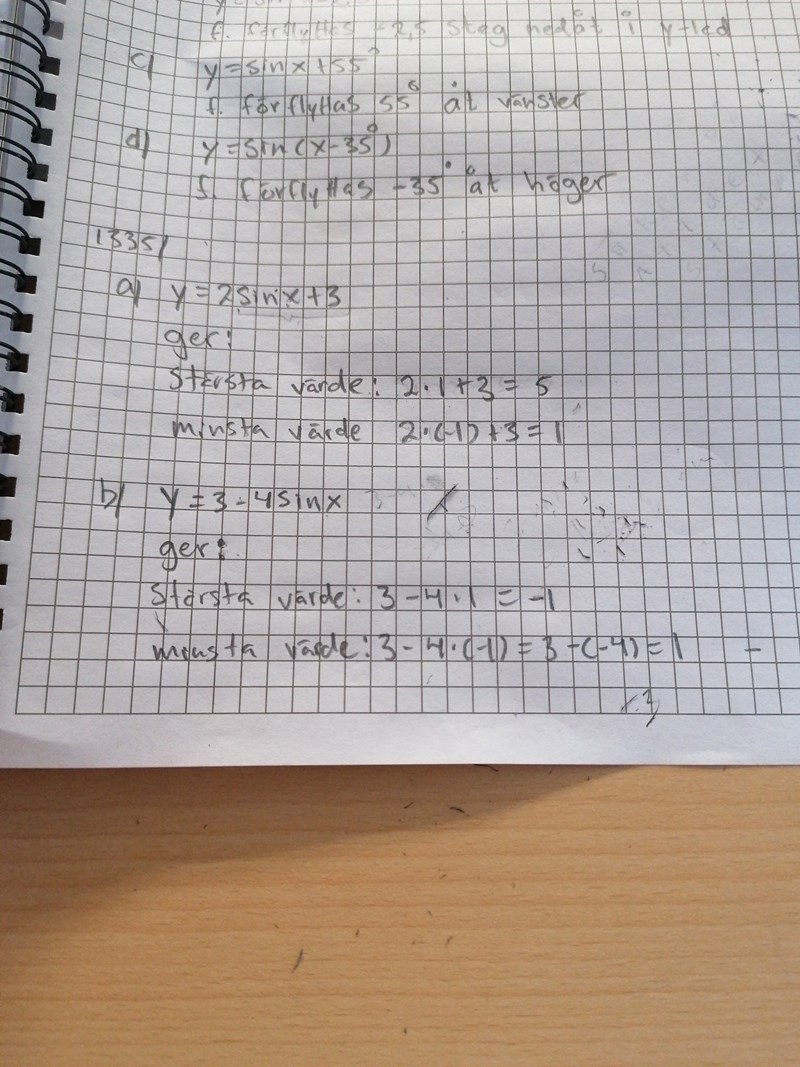 f. förflyttas -2,5 steg nedåt i y-led
c) y = sin x + 55°
f. förflyttas 55° åt vänster
d) y = sin(x - 35°)
f. förflyttas -35° åt höger
1335/
a) y = 2 sin x + 3
ger:
största värde: 2·1+3 = 5
minsta värde 2·(-1)+3 = 1
b) y = 3 - 4 sin x
ger:
största värde: 3 - 4·1 = -1
minsta värde: 3 - 4·(-1) = 3 -(-4) = 1 -